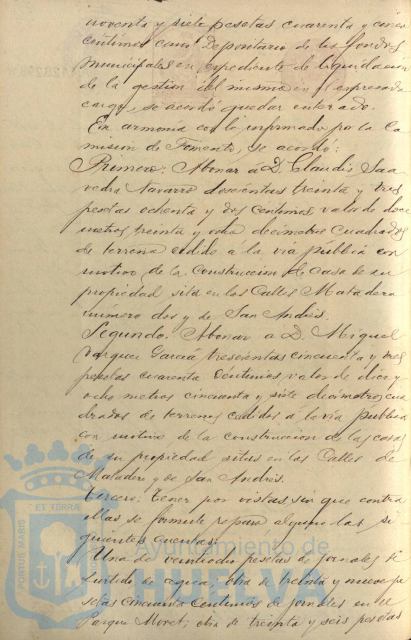 noventa y siete pesetas cuarenta y cinco
centimos como Depositario de los fondos
municipales en expediente de liquidacion
de la gestion del mismo en el expresado
cargo, se acordó quedar enterado.
En armonia con lo informado por la Co
mision de Fomento, se acordó:
Primero: Abonar á D. Claudio Saa
vedra Navarro doscientas treinta y tres
pesetas ochenta y dos centimos valor de doce
metros treinta y ocho decimetros cuadrados
de terreno cedido á la via pública con
motivo de la construccion de casa de su
propiedad sita en las Calles Matadero
numero dos y de San Andrés.
Segundo: Abonar a D. Miguel
Vazquez Garcia trescientas cincuenta y tres
pesetas cuarenta centimos valor de diez y
ocho metros cincuenta y siete decimetros cua
drados de terrenos cedidos á la via publica
con motivo de la construccion de las casas
de su propiedad sitas en las Calles de
Matadero y de San Andrés.
Tercero: tener por vistas sin que contra
ellas se formule reparo alguno las si
guientes cuentas:
Una de veintiocho pesetas de jornales de
surtido de agua, otra de treinta y nueve pe
setas cincuenta centimos de jornales en el
Parque Moret; otra de treinta y seis pesetas
PORTUS MARIS ET TERRAE
Ayuntamiento de
HUELVA